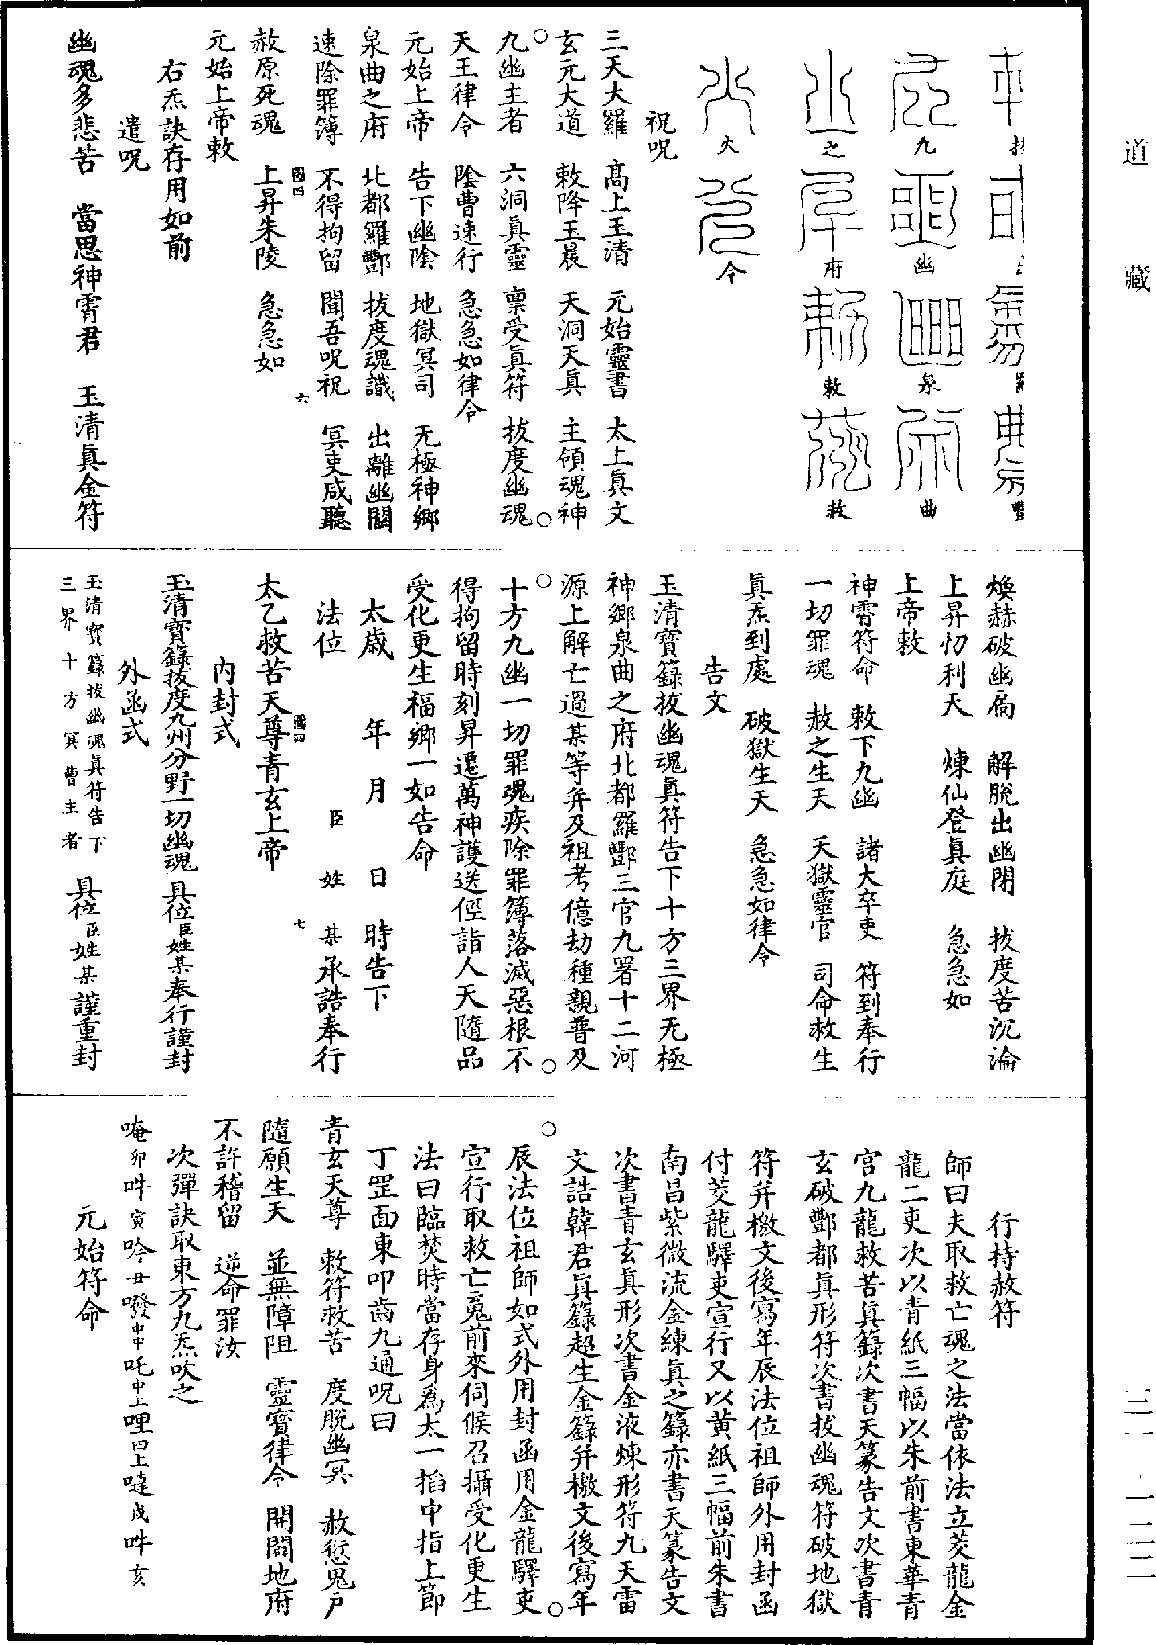 道藏
九 幽 泉 曲
之 府 敕 救
火 令
祝呪
三天大羅 高上玉清 元始靈書 太上眞文
玄元大道 敕降玉晨 天洞天眞 主領魂神
九幽主者 六洞眞靈 禀受眞符 拔度幽魂
天王律令 陰曹速行 急急如律令
元始上帝 告下幽陰 地獄冥司 无極神鄉
泉曲之府 北都羅酆 拔度魂識 出離幽關
速除罪簿 不得拘留 聞吾呪祝 冥吏咸聽
赦原死魂 上昇朱陵 急急如
元始上帝敕
右炁訣存用如前
遣呪
幽魂多悲苦 當思神霄君 玉清眞金符
六
煥赫破幽扃 解脫出幽閉 拔度苦沉淪
上昇忉利天 煉仙登眞庭 急急如
上帝敕
神霄符命 敕下九幽 諸大卒吏 符到奉行
一切罪魂 赦之生天 天獄靈官 司命救生
眞炁到處 破獄生天 急急如律令
告文
玉清寶籙拔幽魂眞符告下十方三界无極
神鄉泉曲之府北都羅酆三官九署十二河
源上解亡過某等并及祖考億劫種親普及
十方九幽一切罪魂疾除罪簿落滅惡根不
得拘留時刻昇遷萬神護送徑詣人天隨品
受化更生福鄉一如告命
太歲 年 月 日 時告下
法位 臣 姓 某承誥奉行
太乙救苦天尊青玄上帝
內封式
玉清寶籙拔度九州分野一切幽魂具位臣姓某奉行謹封
外函式
玉清寶籙拔幽魂眞符告下
三界十方冥曹主者 具位臣姓某謹重封
七
行持赦符
師曰夫取救亡魂之法當依法立茭龍金
龍二吏次以青紙三幅以朱前書東華青
宮九龍救苦眞籙次書天篆告文次書青
玄破酆都眞形符次書拔幽魂符破地獄
符并檄文後寫年辰法位祖師外用封函
付茭龍驛吏宣行又以黄紙三幅前朱書
南昌紫微流金練眞之籙亦書天篆告文
次書青玄眞形次書金液煉形符九天雷
文誥韓君眞籙超生金籙并檄文後寫年
辰法位祖師如式外用封函用金龍驛吏
宣行取救亡冤前來伺候召攝受化更生
法曰臨焚時當存身爲太一搯中指上節
丁罡面東叩齒九通呪曰
青玄天尊 敕符救苦 度脫幽冥 赦愆鬼户
隨願生天 並無障阻 靈寶律令 開闢地府
不許稽留 逆命罪汝
次彈訣取東方九炁吹之
唵卯吽寅吟丑㗶中中吒中上哩巳上噠戌吽亥
元始符命
三一·一二二